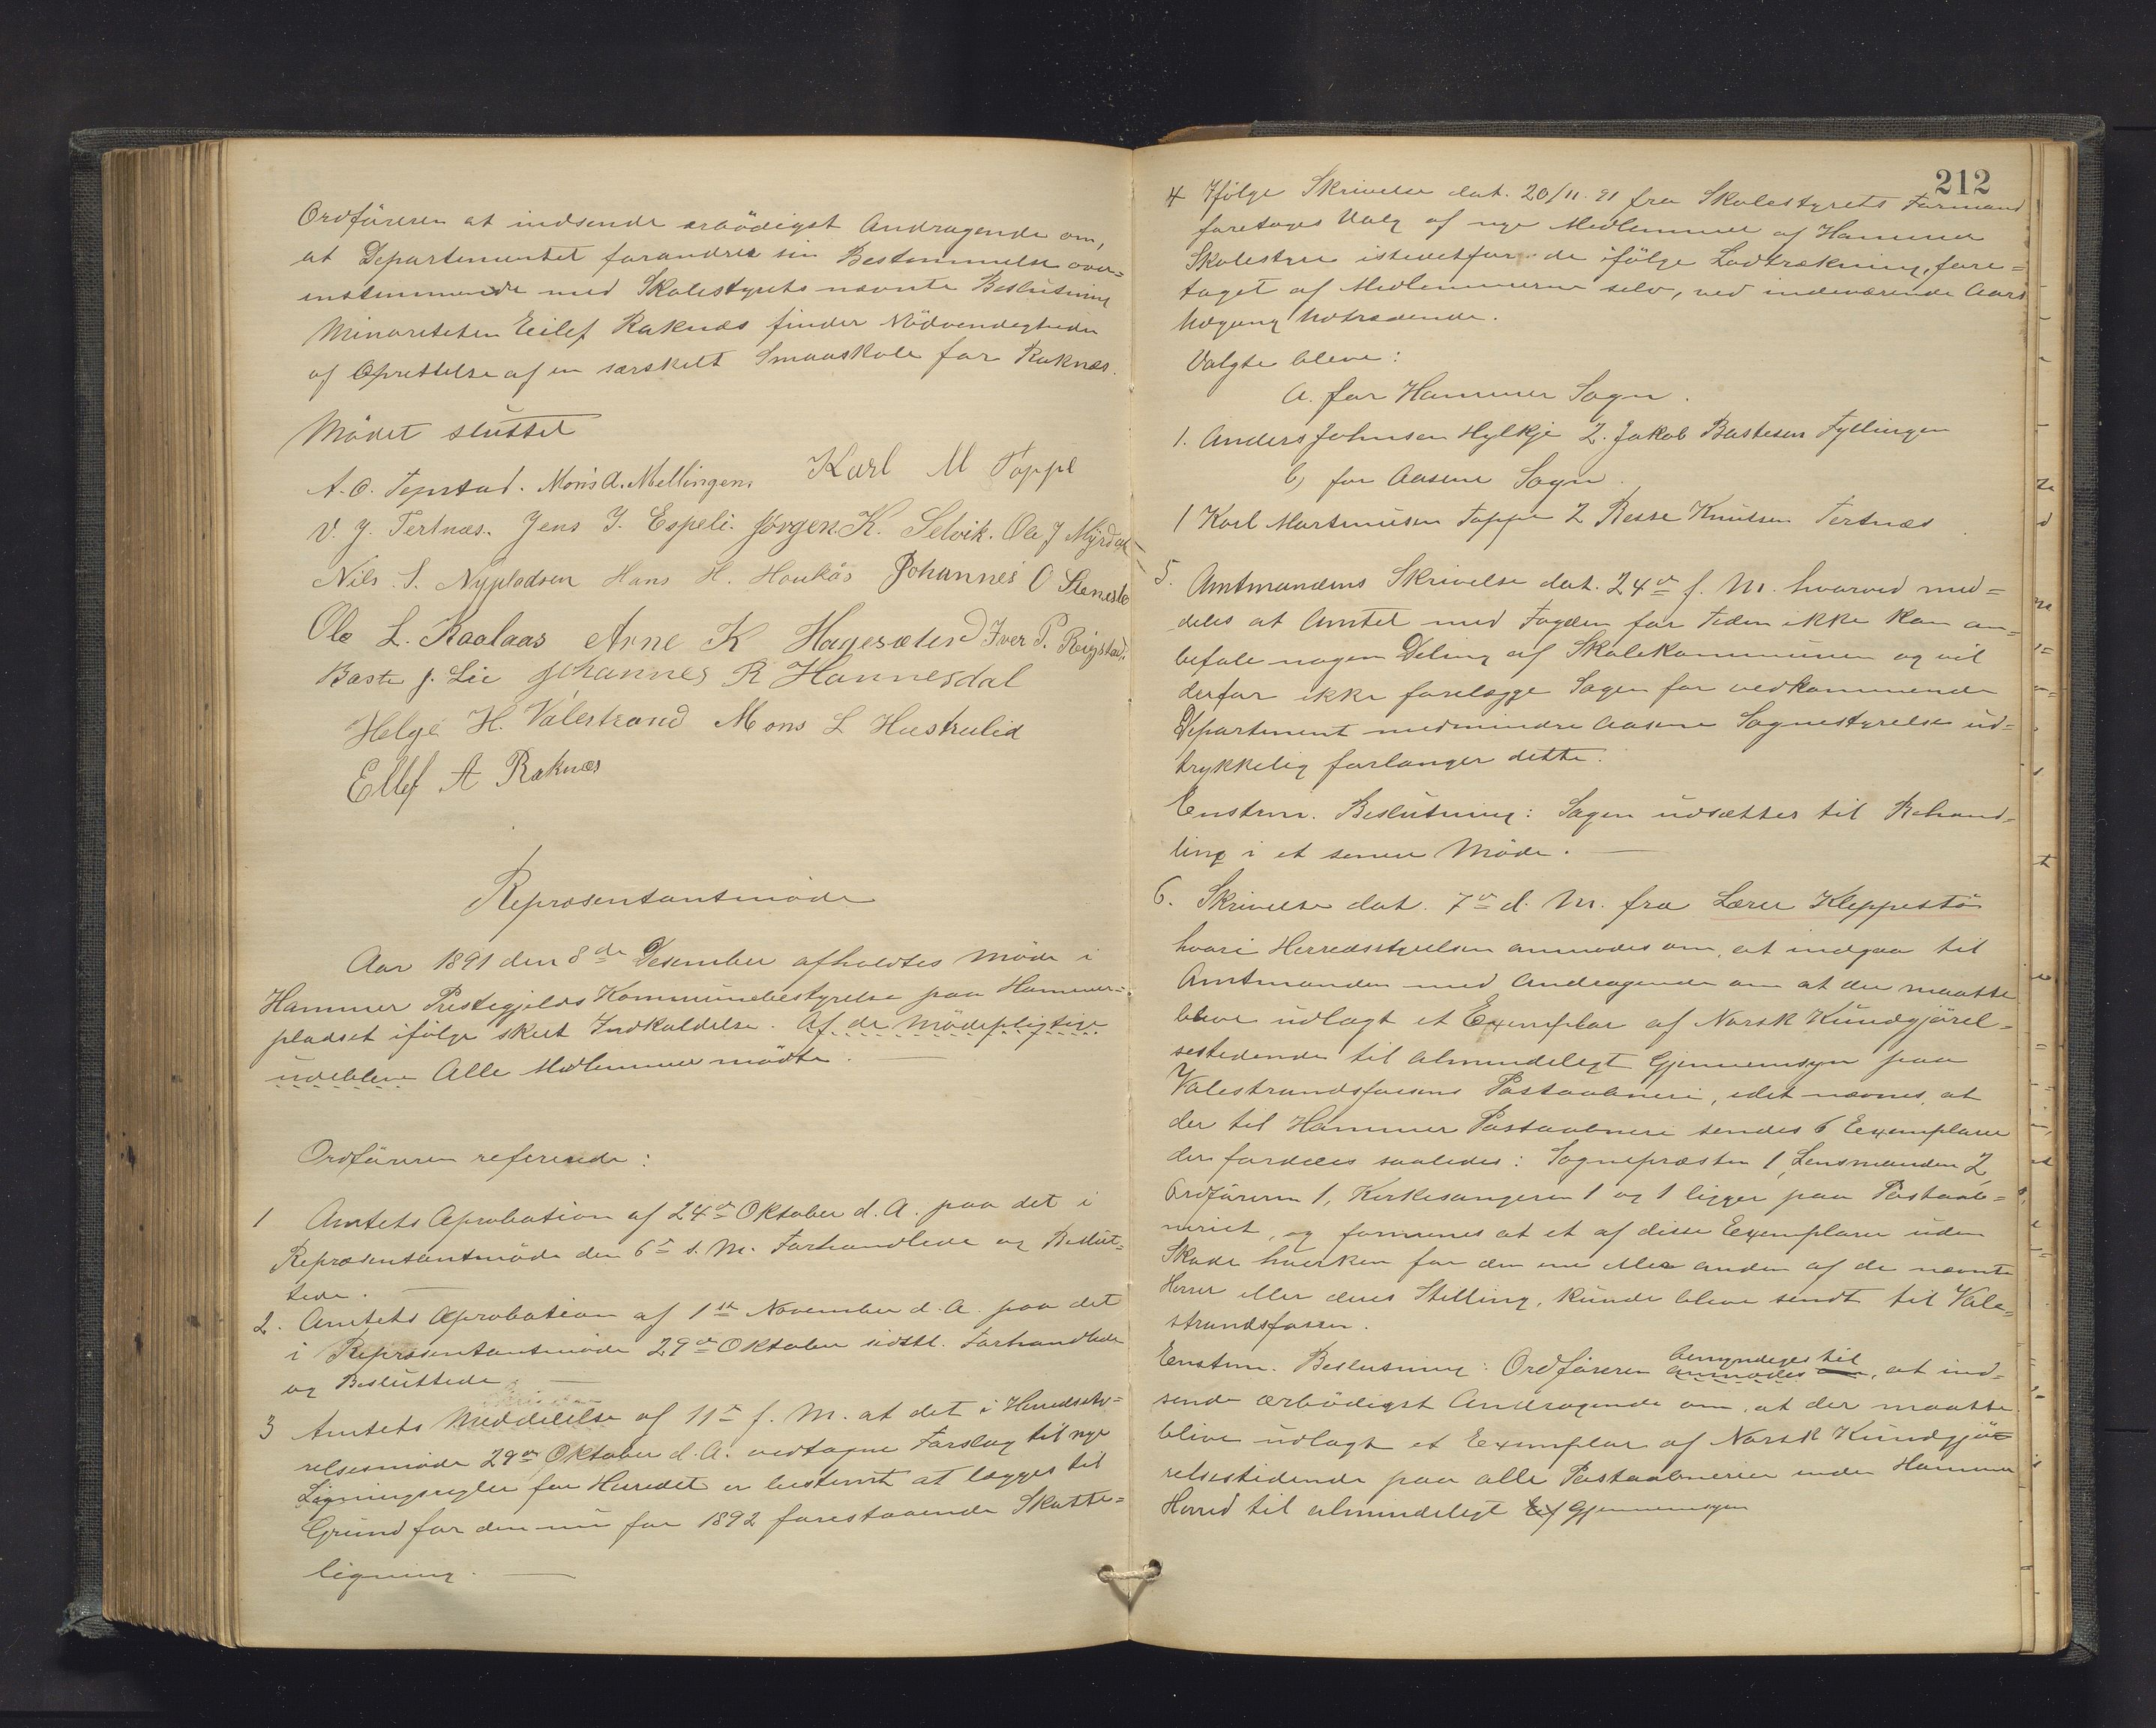 Ordföreren at indsende ærbödigst Andragende om,
at Departementet forandrer sin Bestemmelse over=
instemmende med Skolestyrets nævnte Beslutning
Minoriteten Eilef Raknæs finder Nödvendigheden
af Oprettelse af en særskilt Smaaskole for Raknæs.
Mödet sluttet
A. O. Tepstad. Mons A. Mellingen. Karl M Toppe
V. J. Tertnæs. Jens J. Espeli. Jørgen. K. Selvik. Ole J Myrdal
Nils. S. Hans H. Haukås Johannes O Stenesto
Ole L. Kaalaas Arne K Hagesæter Iver P. Reigstad.
Baste J. Lie Johannes R Hannesdal
Helge H. Valestrand Mons L Hustrulid
Ellef A Raknæs
Repræsentantmöde
Aar 1891 den 8de Desember afholdtes Möde i
Hammer Prestegjelds Kommunebestyrelse paa Hammer=
pladset ifölge skeet Indkaldelse. Af de Mödepligtige
udebleve Alle Medlemmer mödte.
Ordföreren refererede:
1 Amtets Aprobation af 24de Oktober d. A. paa det i
Repræsentantmöde den 6te s. M. Forhandlede og Beslut=
tede.
2. Amtets Aprobation af 1ste November d. A. paa det
i Repræsentantmöde 29de Oktober sidstl. Forhandlede
og Besluttede
3 Amtets Meddelelse af 11te f. M. at det i Herredssty=
relsesmöde 29de Oktober d. A. vedtagne Forslag til nye
Ligningsregler for Herredet er bestemt at lægges til
Grund for den nu for 1892 forestaaende Skatte=
ligning.
212
4 Ifölge Skrivelse dat. 20/11. 91 fra Skolestyrets Formand
foretoges Valg af nye Medlemmer af Hammer
Skolestyre istedetfor de ifölge Lodtrækning, fore=
taget af Medlemmerne selv, ved indeværende Aars
Udgang Udtrædende.
Valgte bleve:
A. for Hammer Sogn.
1. Anders Johnsen Hylkje 2. Jakob Bastesen Fyllingen
b, for Aasene Sogn.
1 Karl Martinusen Toppe 2 Resse Knutsen Tertnæs.
5. Amtmandens Skrivelse dat. 24de f. M. hvorved med=
deles at Amtet med Fogden for Tiden ikke kan an=
befale nogen Deling af Skolekommunen og vil
derfor ikke forelægge Sagen for vedkommende
Department medmindre Aasene Sognestyrelse ud=
trykkelig forlanger dette.
Enstem. Beslutning: Sagen udsættes til Behand=
ling i et senere Möde.
6. Skrivelse dat. 7de d. M. fra Lærer Kleppestö
hvori Herredsstyrelsen anmodes om, at indgaa til
Amtmanden med Andragende om at der maatte
blive udlagt et Exemplar af Norsk Kundgjörel=
sestidende til almindeligt Gjennemsyn paa
Valestrandsfossens Postaabneri, idet nævnes, at
der til Hammer Postaabneri sendes 6 Exemplarer
der fordeles saaledes: Sognepræsten 1, Lensmanden 2,
Ordföreren 1, Kirkesangeren 1 og 1 ligger paa Postaab=
neriet, og formenes at et af disse Exemplarer uden
Skade hverken for den ene eller anden af de nævnte
Herrer eller deres Stilling, kunde blive sendt til Vale=
strandsfossen.
Enstem. Beslutning: Ordföreren bemyndiges til anmodes om, at ind=
sende ærbödigst Andragende om, at der maatte
blive udlagt et Exemplar af Norsk Kundgjö=
relsestidende paa alle Postaabnerier inden Hammer
Herred til almindeligt Gjennemsyn